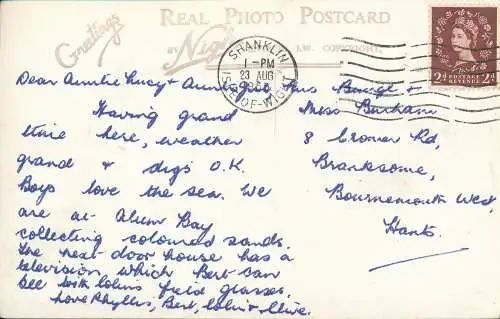 REAL PHOTO POSTCARD
Greetings
BY Nigh J.W. COPYRIGHT
SHANKLIN
1 - PM
23 AUG
ISLE-OF-WIGHT
POSTAGE
REVENUE
2d 2d
Dear Auntie Lucy &
Having grand
time here, weather
grand & digs O.K.
Boys love the sea. We
are at Alum Bay
collecting coloured sands.
The next-door house has a
television which Bert can
see with Colin's field glasses.
Love Phyllis, Bert, Colin & Clive.
&
Miss Burham
8 Cromer Rd,
Branksome,
Bournemouth West,
Hants.